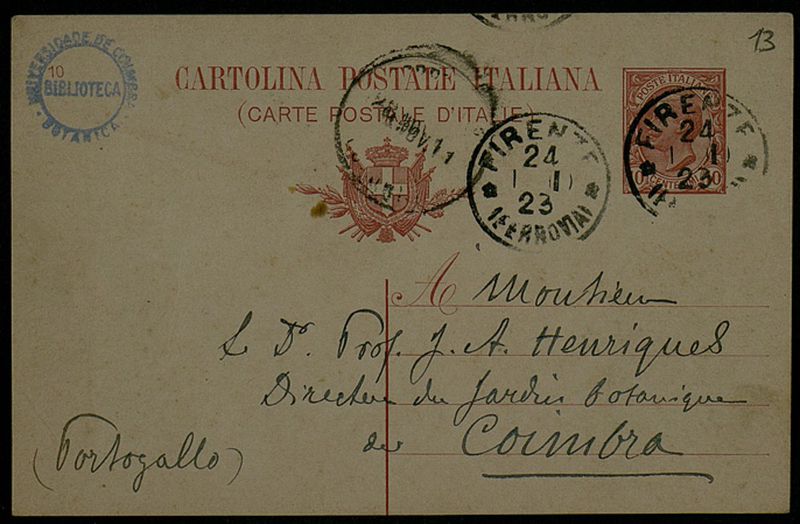 13
UNIVERSIDADE DE COIMBRA
10
BIBLIOTECA
BOTANICA
CARTOLINA POSTALE ITALIANA
(CARTE POSTALE D'ITALIE)
POSTE ITALIANE
CENTESIMI
FIRENZE
24
23
(FERROVIA)
FIRENZE
24
23
A Monsieur
Le Dr. Prof. J. A. Henriques
Directeur du Jardin botanique
de Coimbra
(Portogallo)